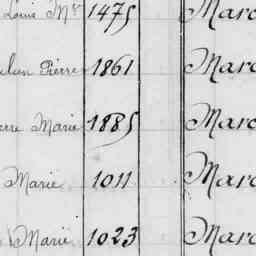 Louis Mie 1475 Marc
Pierre 1861 Marc
Marie 1885 Marc
Marie 1011 Marc
Marie 1023 Marc